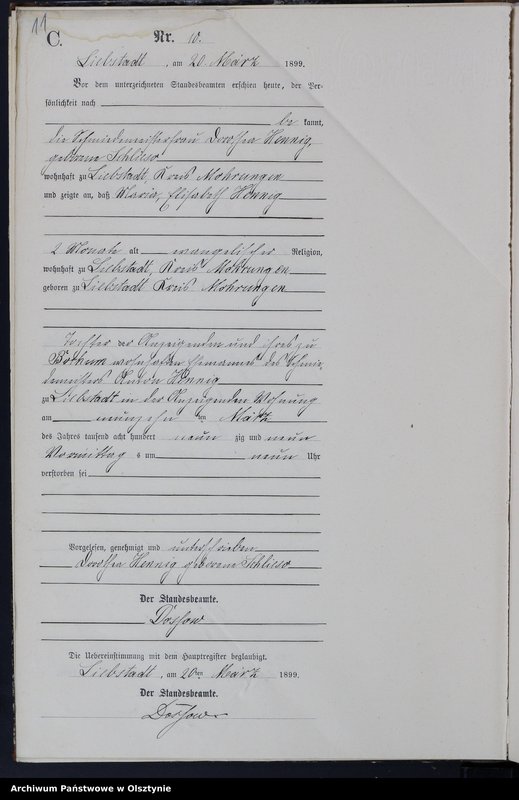 11
C.
Nr. 10.
Liebstadt, am 20 März 1899.
Vor dem unterzeichneten Standesbeamten erschien heute, der Per-
sönlichkeit nach
be kannt,
die Schmiedemeisterfrau Dorothea Hennig,
geborene Schlieso
wohnhaft zu Liebstadt, Kreis Mohrungen
und zeigte an, daß Maria, Elisabeth Hennig
2 Monate alt evangelischer Religion,
wohnhaft zu Liebstadt, Kreis Mohrungen
geboren zu Liebstadt Kreis Mohrungen
Tochter der Anzeigenden und ihres zu
Bochum wohnhaften Ehemannes des Schmie-
demeisters Anton Hennig
zu Liebstadt in der Anzeigenden Wohnung
am neunzehn ten März
des Jahres tausend acht hundert neun zig und neun
Vormittag s um neun Uhr
verstorben sei
Vorgelesen, genehmigt und unterschrieben
Dorothea Hennig geborene Schlieso
Der Standesbeamte.
Dossow
Die Uebereinstimmung mit dem Hauptregister beglaubigt.
Liebstadt, am 20ten März 1899.
Der Standesbeamte.
Dossow
Archiwum Państwowe w Olsztynie